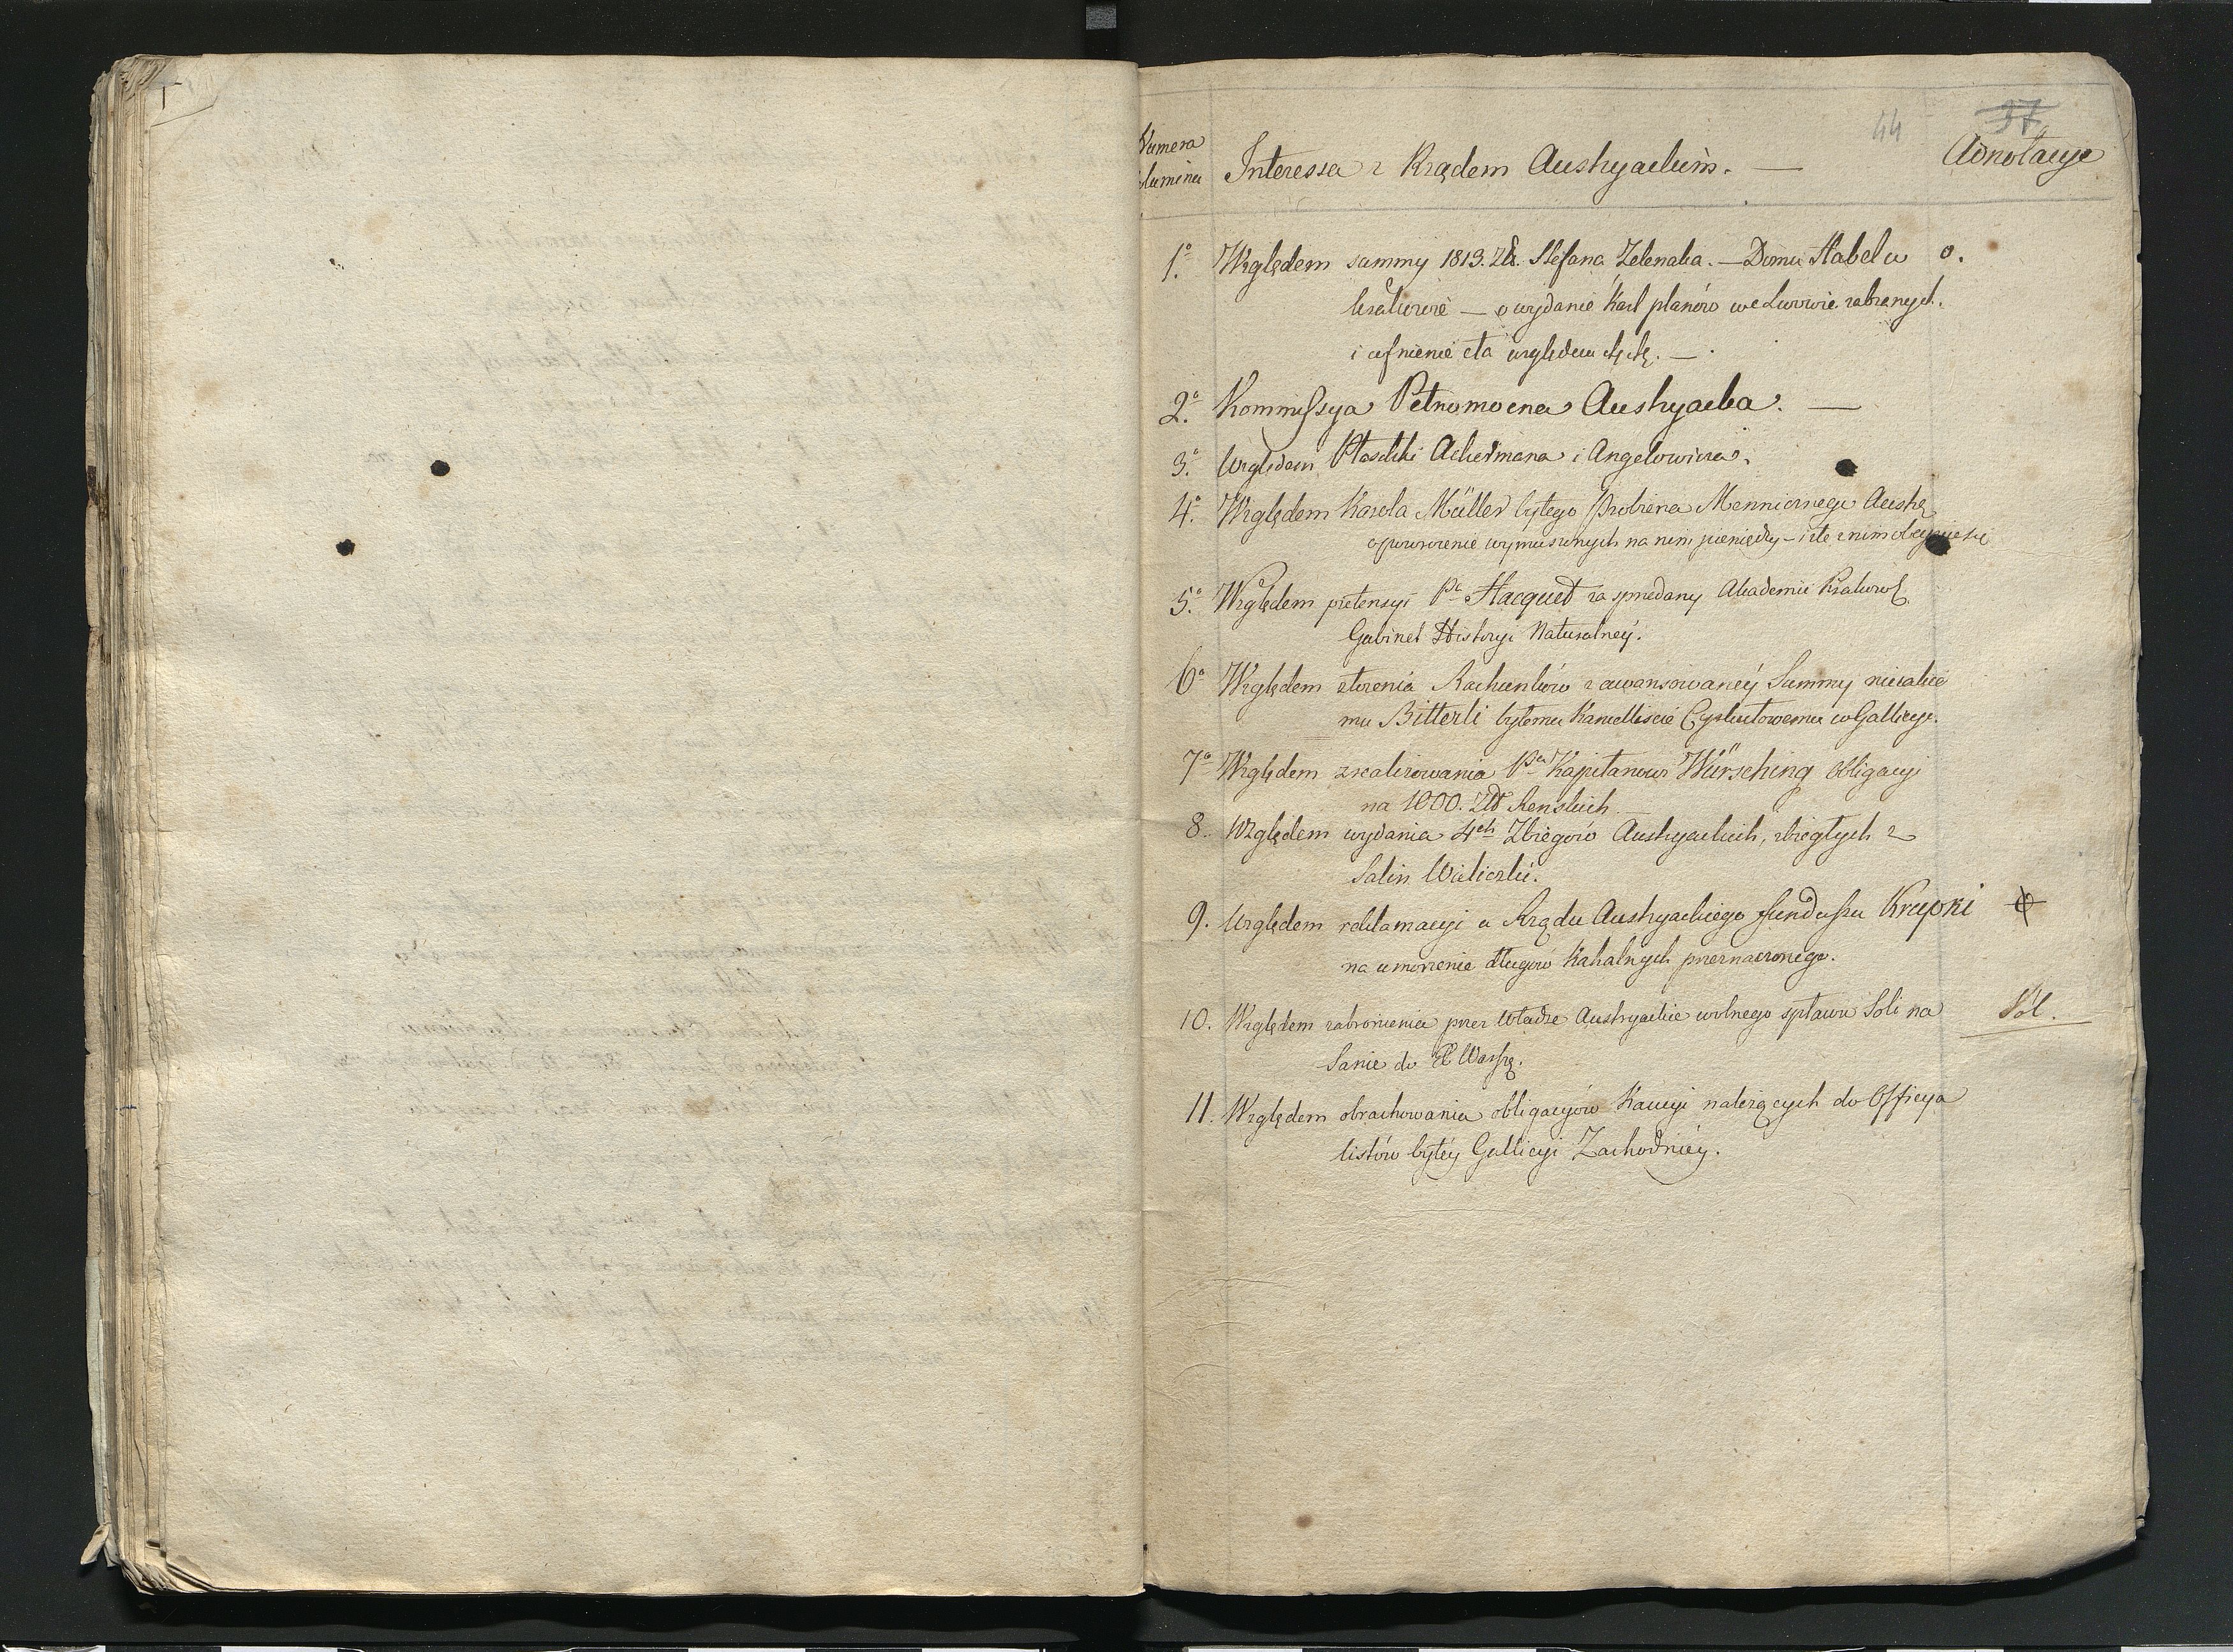 44 37
Numera
lumina
Interessa z Rządem Austryackim. —
Adnotacye
1º Względem summy 1813. Zł. Stefana Zelenaka. — Domu Habel w o.
Krakowie — o wydanie kart planów we Lwowie zabranych.
i cofnienie cła względem
2º Kommissya Pełnomocna Austryacka. —
3º Względem Płaschki Ackermana i Angelowicza.
4º Względem Karola Müller byłego Probierza Mennicznego Austr.
o powrócenie wymuszonych na nim pieniędzy — i złe z nim obejście się
5º Względem pretensyi Pa Hacquet za sprzedany Akademii Krakows.
Gabinet Historyi Naturalney.
6º Względem złożenia Rachunków z awansowaney Summy niejakie
mu Bitterli byłemu Kancelliście Cyrkułowemu w Gallicyi.
7º Względem zrealizowania Pa Kapitanowi Würsching obligacyi
na 1000. Zł Reńskich
8. Względem wydania 4ch Zbiegów Austryackich, zbiegłych z
Salin Wieliczki.
9. Względem reklamacyi u Rządu Austryackiego funduszu Krupki
na umorzenie długów Kahalnych przeznaczonego.
10. Względem zabronienia przez Władze Austryackie wolnego spławu Soli na Sól.
Sanie do X Warsz.
11. Względem obrachowania obligacyów Kaucyi należących do Officya
listów byłey Gallicyi Zachodniéy.